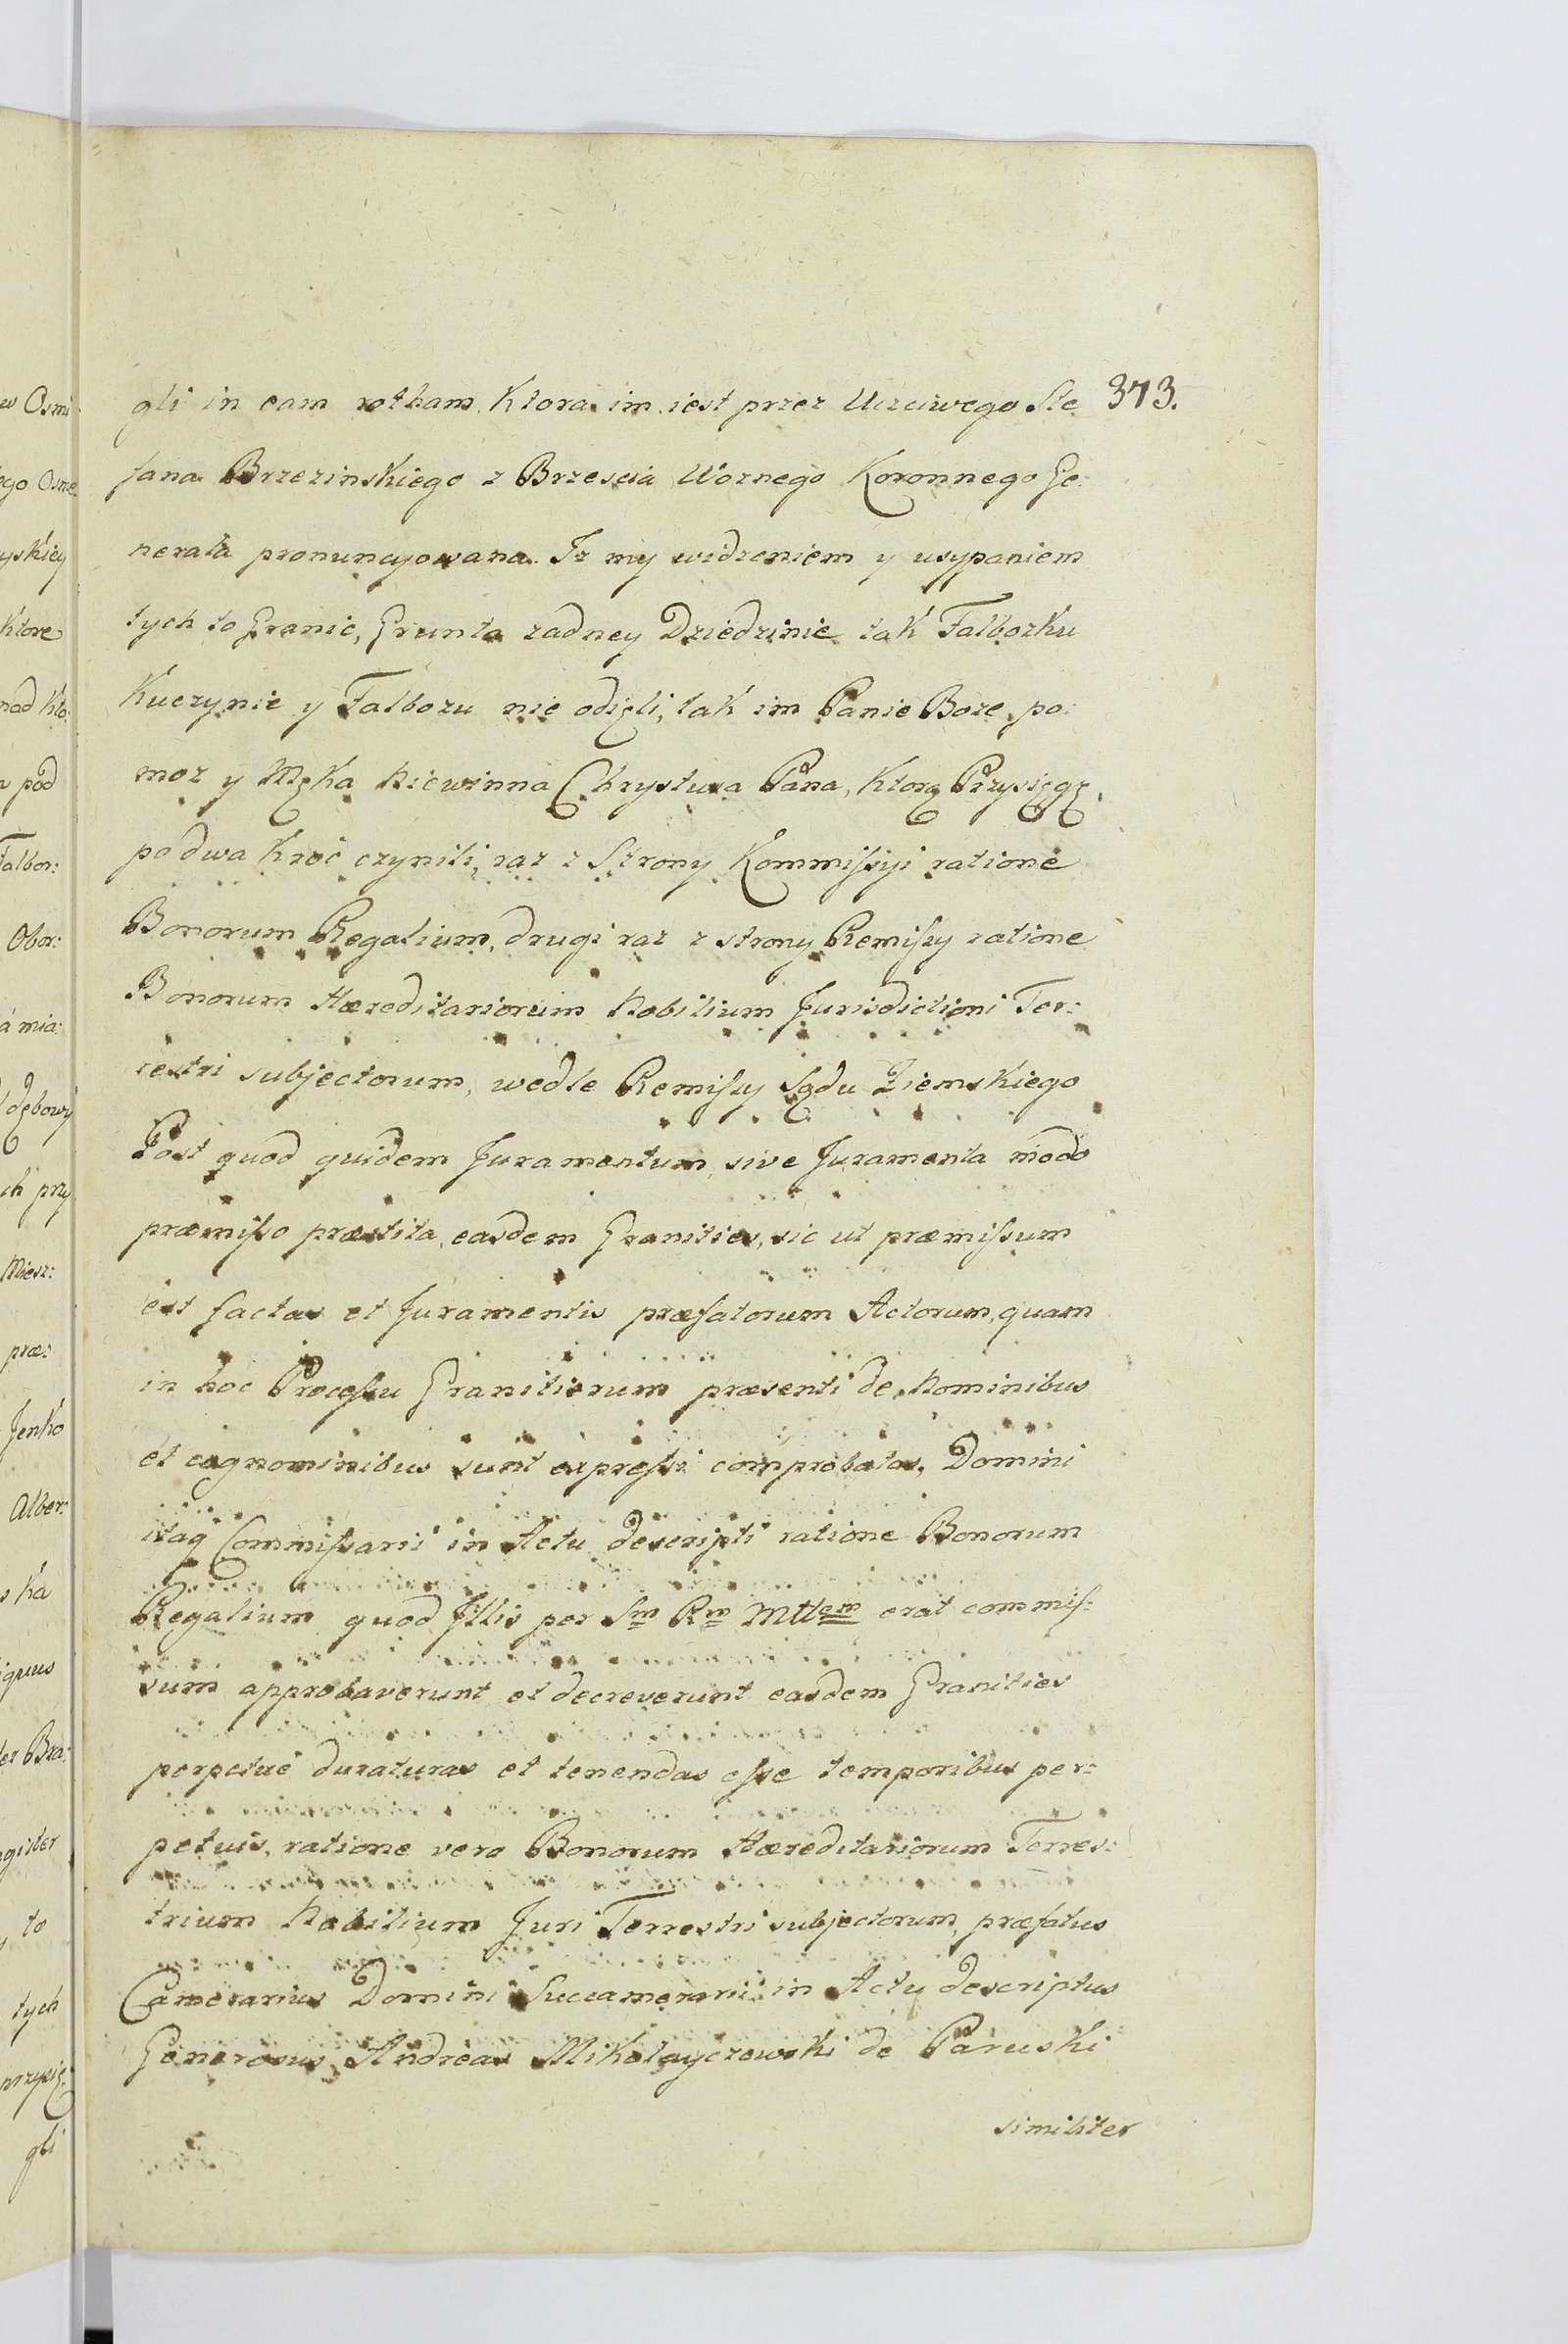 373.
gli in eam rotham. Ktora im iest przez Uczciwego Ste
fana Brzezinskiego z Brzescia Woznego Koronnego Ge:
nerała pronuncyowana. Iz my widzeniem y usypaniem
tych to Granic, Grunta zadney Dziedzinie tak Falbozku
Kuczynie y Falbozu nie odięli, tak im Panie Boze po:
moz y Męka Niewinna Chrystusa Pana, Ktorą Przysięgę
po dwa Kroć czynili, raz z Strony Kommissyi ratione
Bonorum Regalium, drugi raz z strony Remissy ratione
Bonorum Hæreditariorum Nobilium Jurisdictioni Ter:
restri subjectorum, wedle Remissy Sądu Ziemskiego
Post quod quidem Juramentum, sive Juramenta modo
præmisso præstita, easdem Granities, sic ut præmissum
est factas et Juramentis præfatorum Actorum, quam
in hoc Processu Granitiorum præsenti de Nominibus
et cognominibus sunt expressi comprobatas. Domini
itaq Commissarii in Actu descripti ratione Bonorum
Regalium quod Illis per Sm Rm Mttem erat commis:
sum approbaverunt et decreverunt easdem Granities
perpetue duraturas et tenendas esse temporibus per:
petuis, ratione vero Bonorum Hæreditariorum Terres:
trium Nobilium Juri Terrestri subjectorum, præfatus
Camerarius Domini Succamerarii in Actu descriptus
Generosus Andreas Mikołayczewski de Paruski
similiter
w Osmi
ego Osme
yskiey
ktore
nad Kto:
pod
Falbor:
Obor:
á mia:
dębowy
ch przy
Miesz:
præ:
Jenko
Alber:
ka
iquus
ter Bra:
gister
to
tych
przysię:
gli